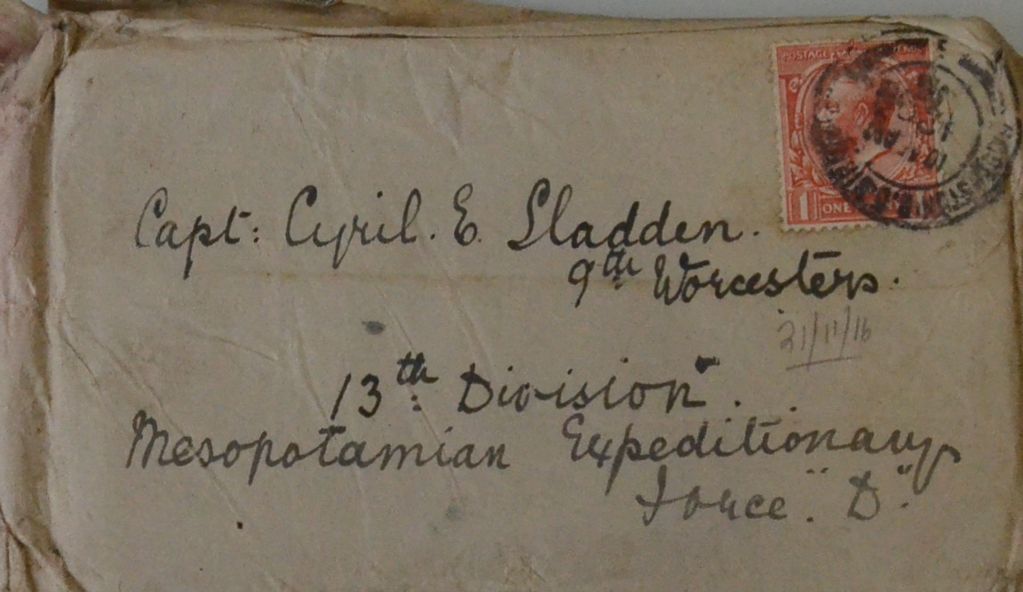 POSTAGE
1 ONE
Capt: Cyril. E. Sladden.
9th Worcesters.
21/11/16
13th: Division.
Mesopotamian Expeditionary
Force. "D".